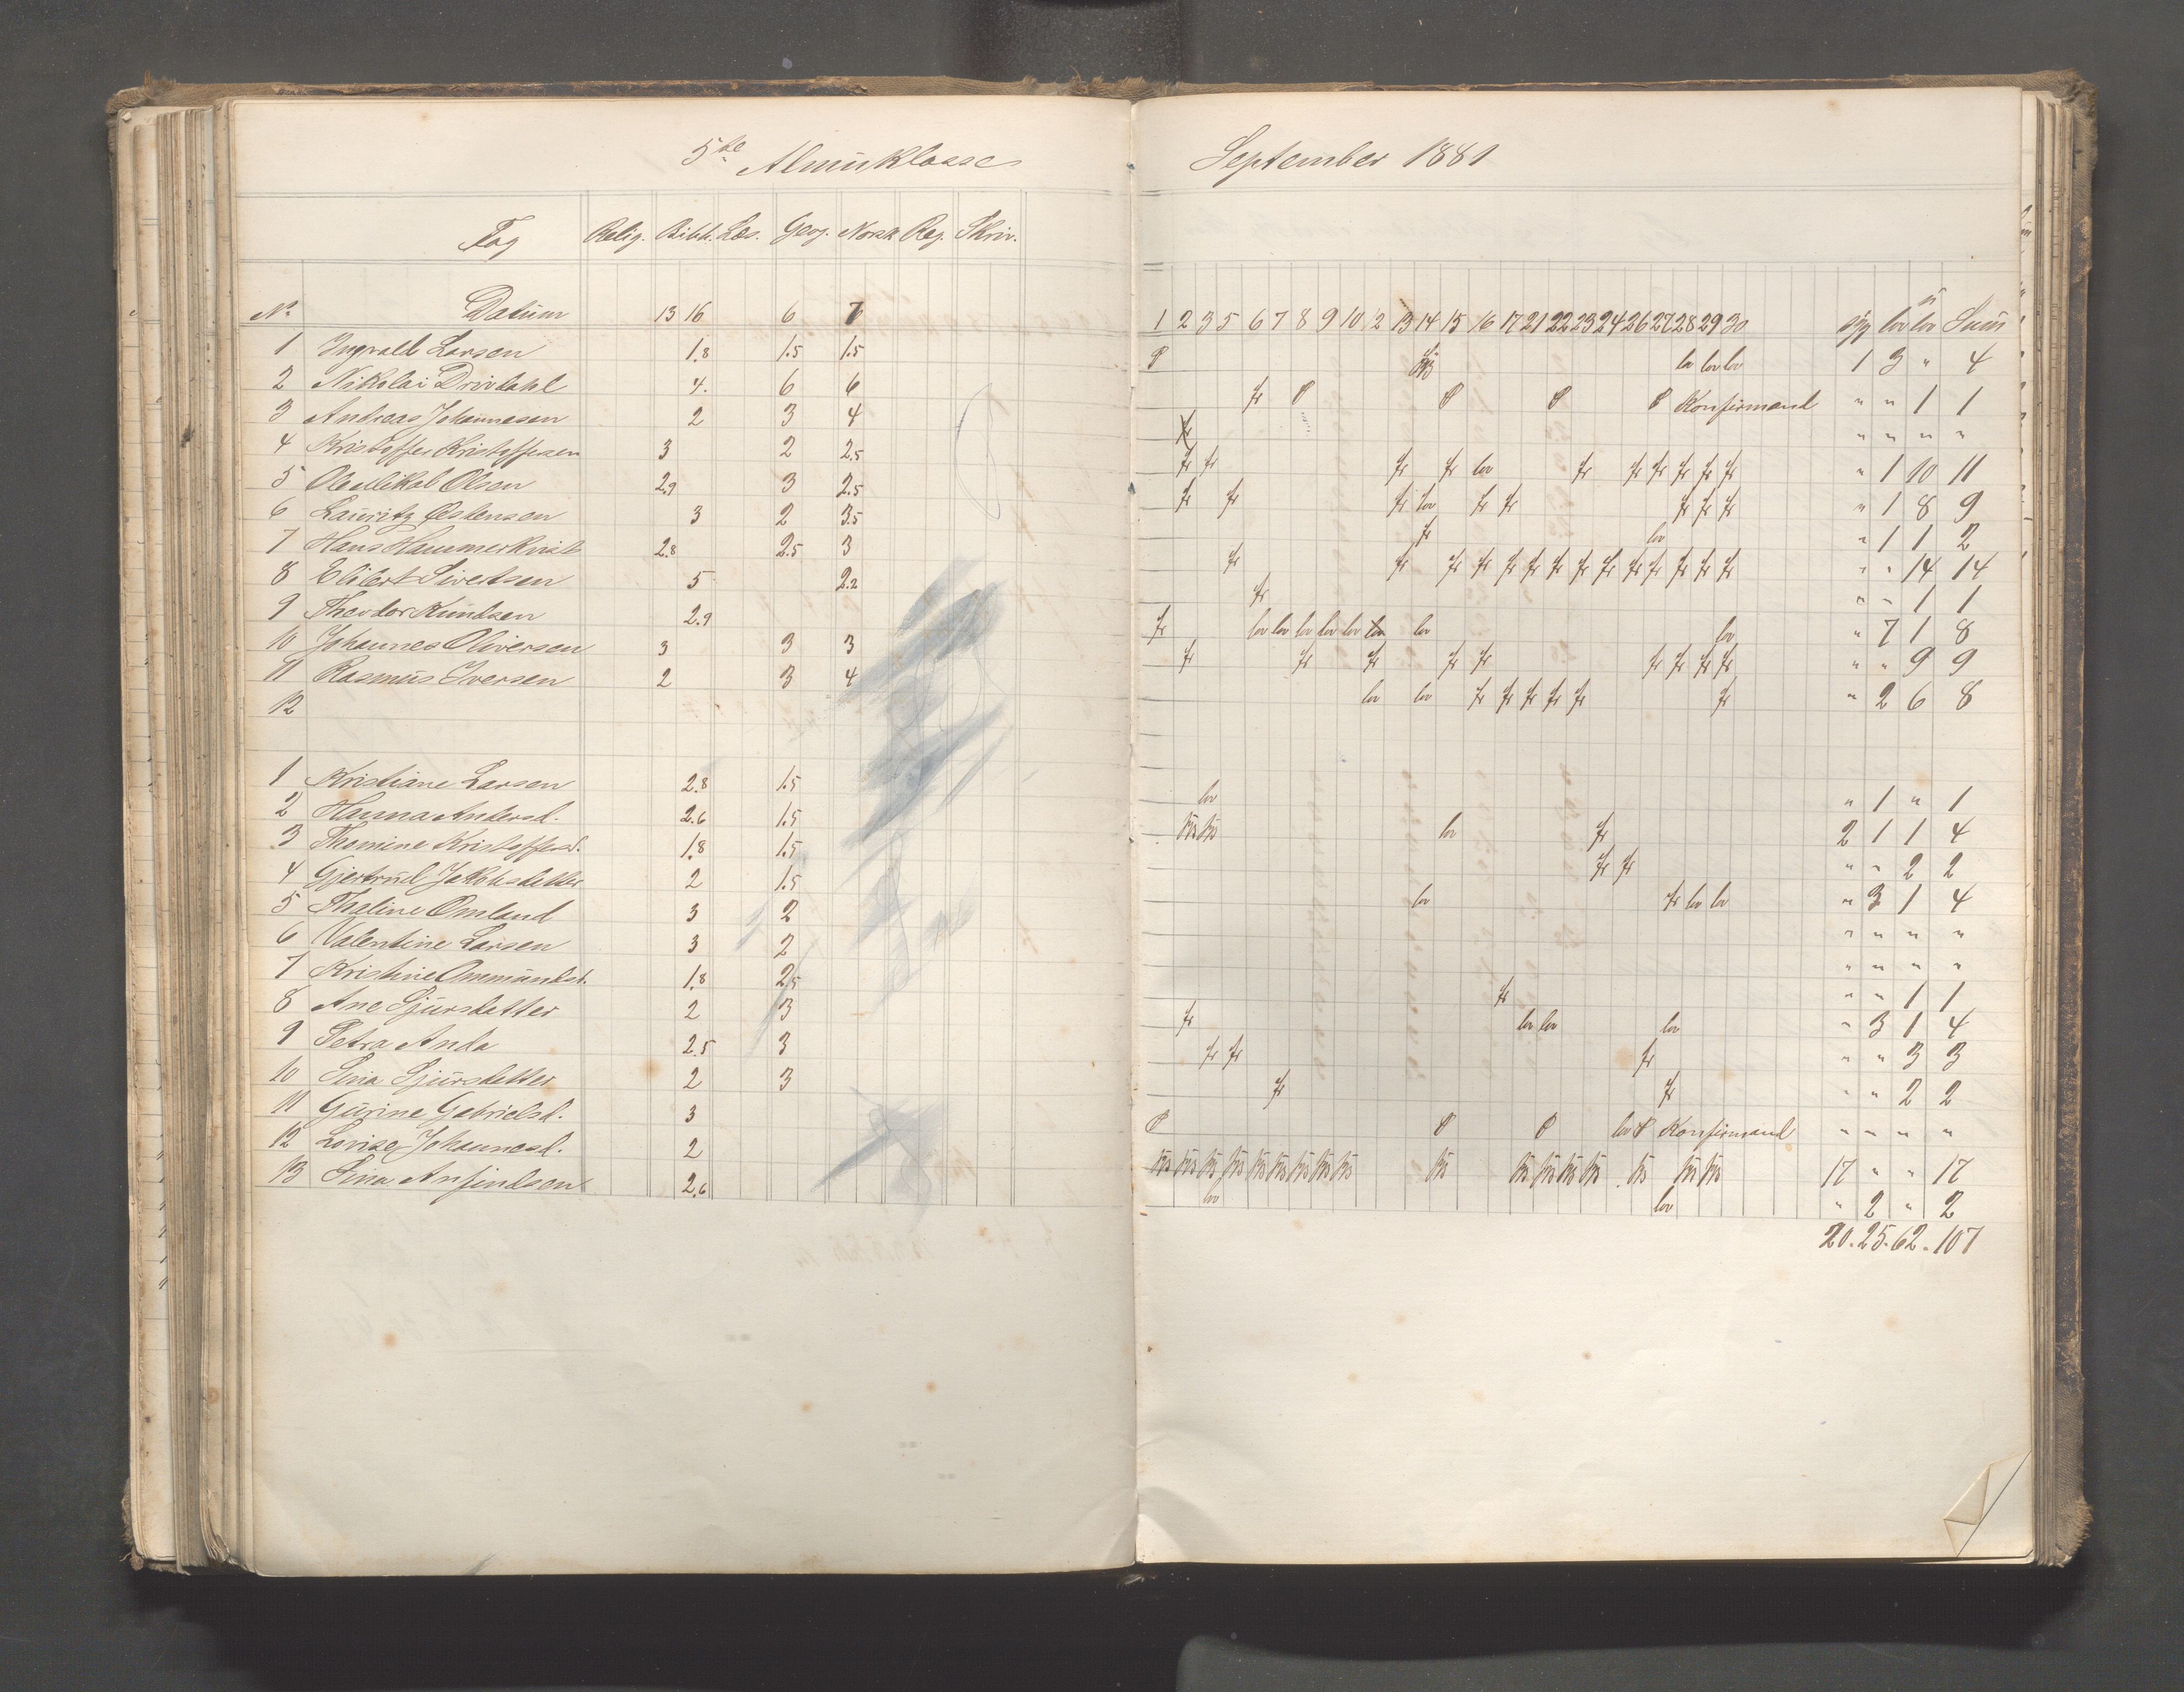 5te Almuklasse
Fag Relig. Bibh. Læs. Geog. Norsk Reg. Skriv.
No Datum 13 16 6 7
1 Ingvald Larsen 1.8 1.5 1.5
2 Nikolai Drivdahl 4. 6 6
3 Andreas Johannesen 2 3 4
4 Kristoffer Kristoffersen 3 2 2.5
5 Ole Mikal Olsen 2.9 3 2.5
6 Lauritz Østensen 3 2 3.5
7 Hans Hammerkvist 2.8 2.5 3
8 Elibert Sivertsen 5 2.2
9 Theodor Knudsen 2.9
10 Johannes Oliversen 3 3 3
11 Rasmus Iversen 2 3 4
12
1 Kristiane Larsen 2.8 1.5
2 Hanna Andersd. 2.6 1.5
3 Thomine Kristoffersd. 1.8 1.5
4 Gjertrud Jakobsdatter 2 1.5
5 Thaline Omland 3 2
6 Valentine Larsen 3 2
7 Kristine Ommundsd. 1.8 2.5
8 Ane Sjursdatter 2 3
9 Petra Anda 2.5 3
10 Sina Sjursdatter 2 3
11 Gurine Gabrielsd. 3
12 Lovise Johannesd. 2
13 Sina Anfindsen 2.6
September 1881
1 2 3 5 6 7 8 9 10 12 13 14 15 16 17 21 22 23 24 26 27 28 29 30 syg lov u lov Sum
P lov lov lov 1 3 " 4
fr P P P P Konfirmand " " 1 1
" " " "
fr fr fr fr lov fr fr fr fr fr fr " 1 10 11
fr fr fr lov fr fr fr fr fr " 1 8 9
fr lov " 1 1 2
fr fr fr fr fr fr fr fr fr fr fr fr fr fr " " 14 14
fr " " 1 1
fr lov lov lov lov lov lov lov lov " 7 1 8
fr fr fr fr fr fr fr fr fr " " 9 9
lov lov fr fr fr fr fr fr " 2 6 8
lov " 1 " 1
sys sys lov fr 2 1 1 4
fr fr " " 2 2
lov fr lov lov " 3 1 4
" " " "
" " " "
fr " " 1 1
fr lov lov lov " 3 1 4
fr fr fr " " 3 3
fr fr " " 2 2
P P P lov P Konfirmand " " " "
sys sys sys sys sys sys sys sys sys sys sys sys sys sys sys sys sys 17 " " 17
lov lov " 2 " 2
20. 25. 62. 107